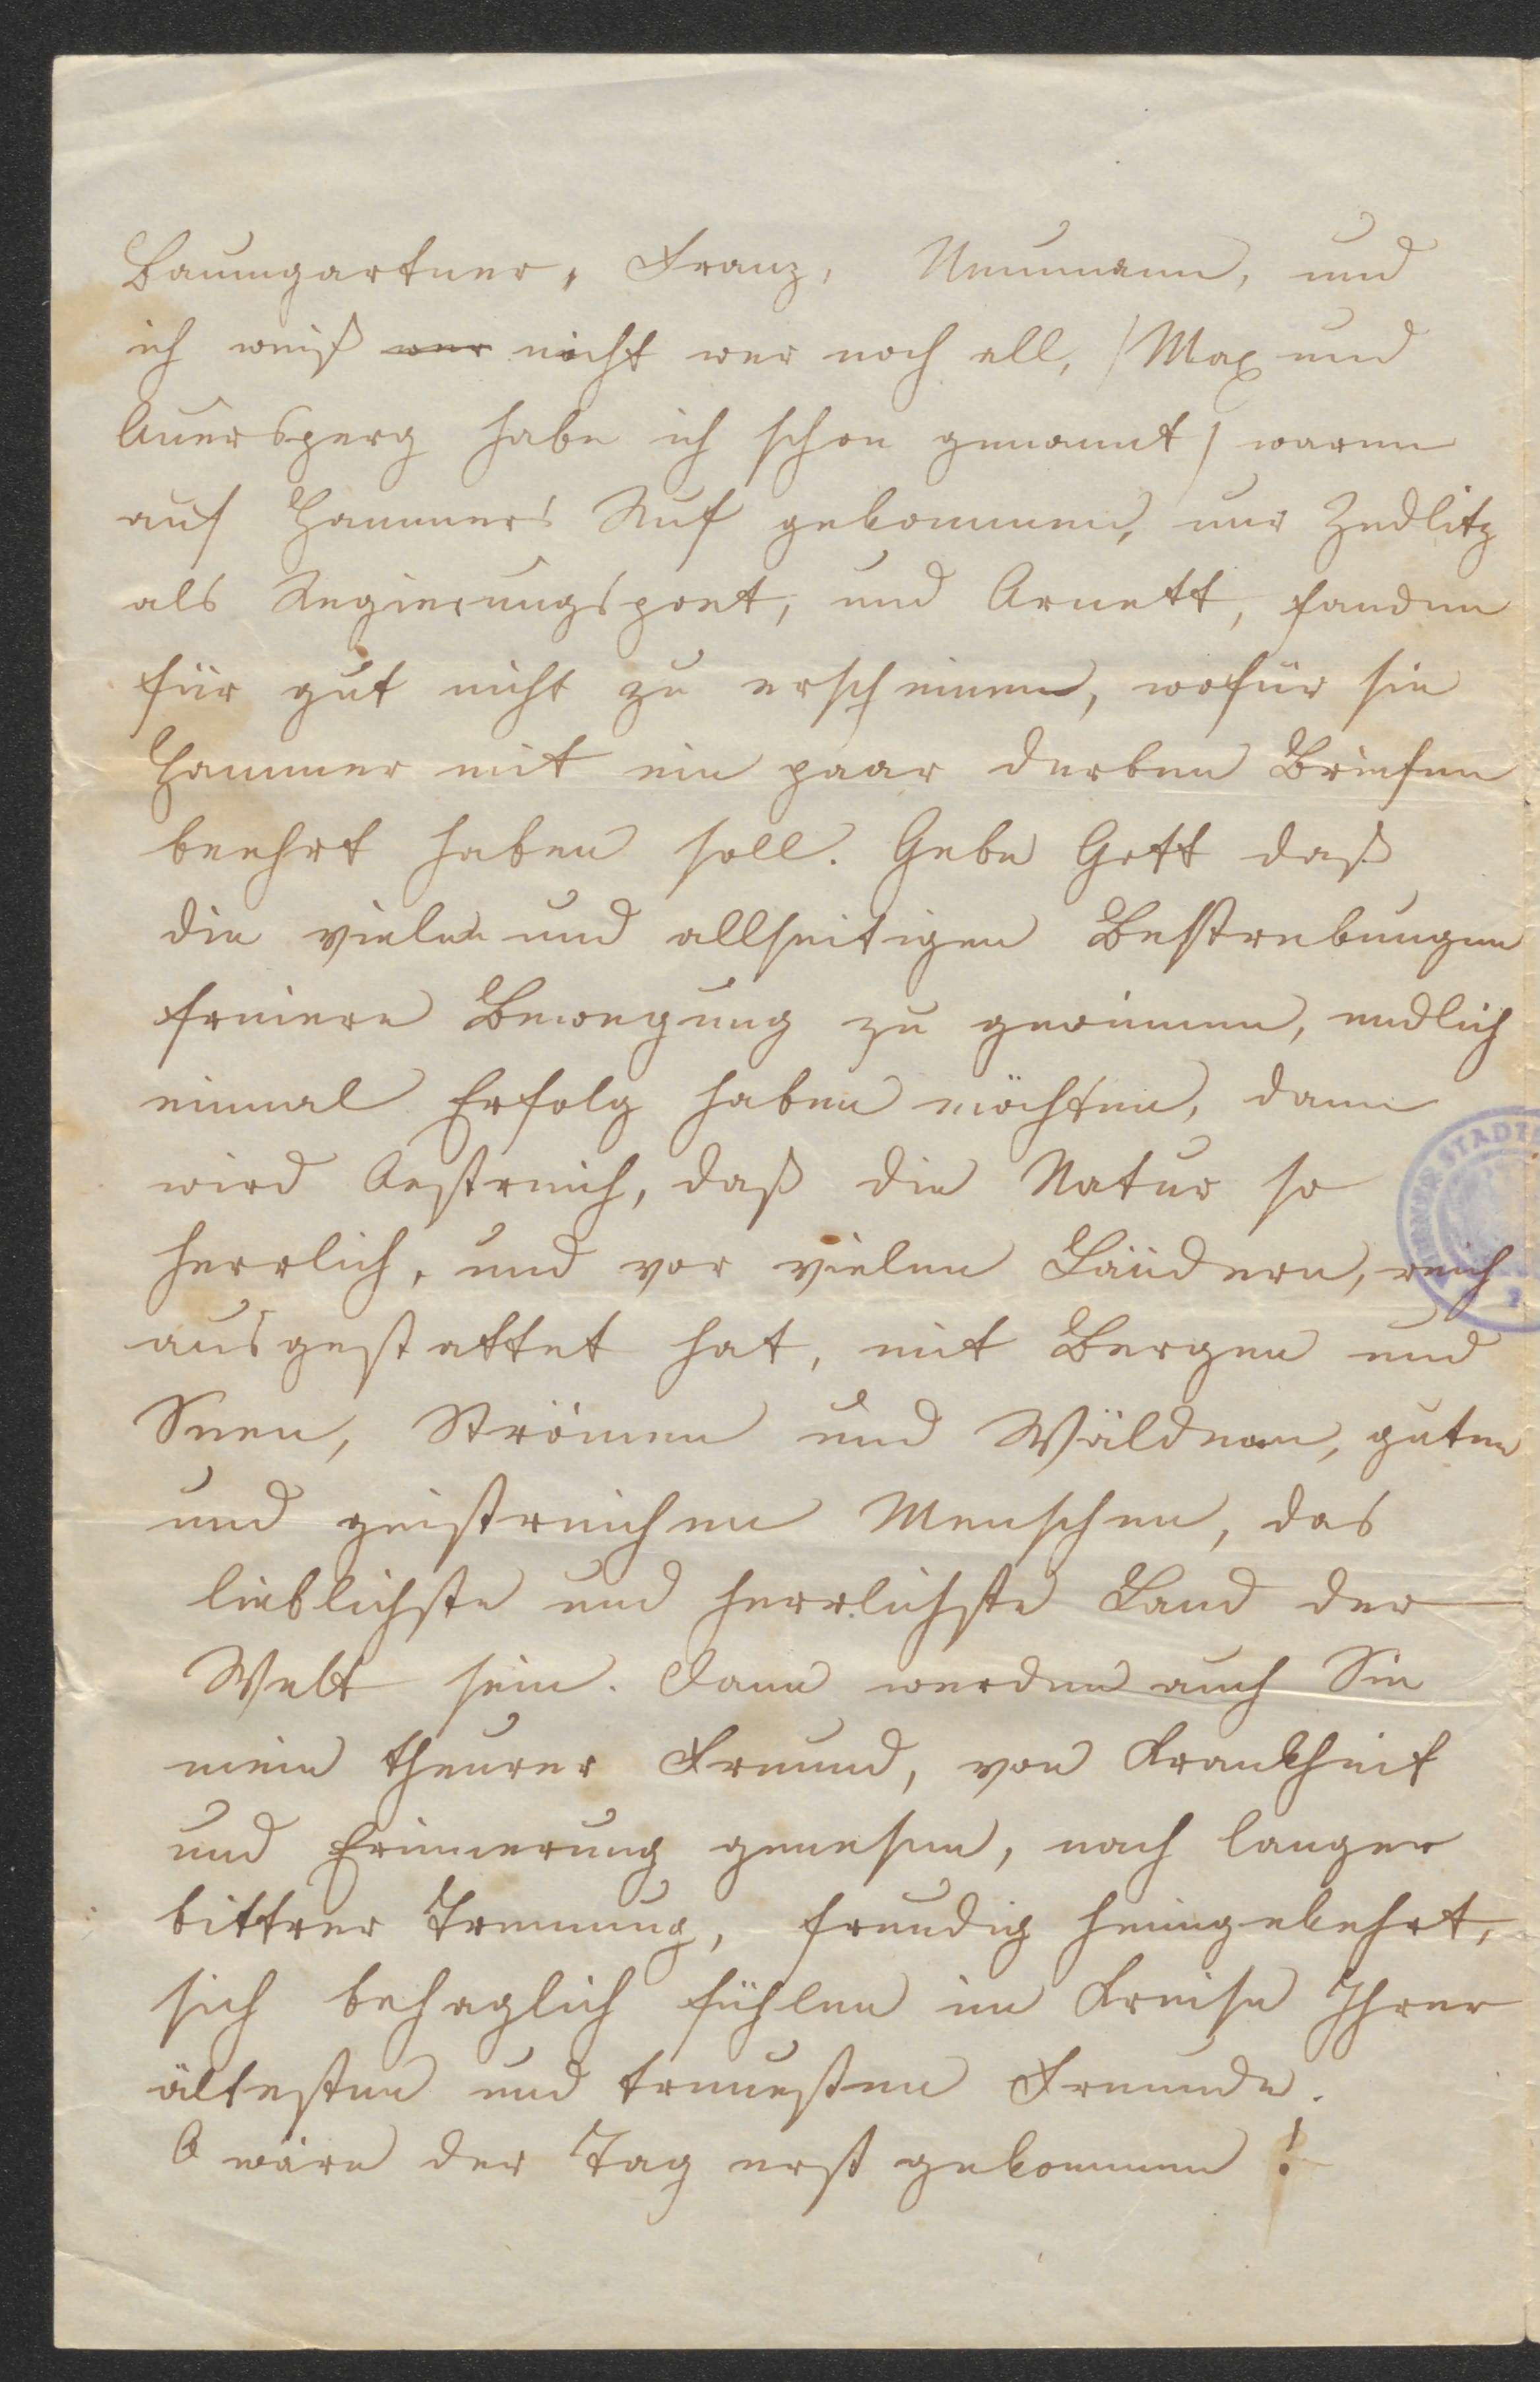 Baumgartner, Franz, Neumann, und
ich weiß wer nicht wer noch all, /Max und
Auersperg habe ich schon genannt/ waren
auf Hammers Ruf gekommen, nur Zedlitz
als Regierungspoet, und Arnett, fanden
für gut nicht zu erscheinen, wofür sie
Hammer mit ein paar derben Briefen
beehrt haben soll. Gebe Gott daß
die vielen und allseitigen Bestrebungen
freiere Bewegung zu gewinnen, endlich
einmal Erfolg haben möchten, dann
wird Oestreich, daß die Natur so
herrlich, und vor vielen Ländern, reich
ausgestattet hat, mit Bergen und
Seen, Strömen und Wäldern, guten
und geistreichen Menschen, das
lieblichste und herrlichste Land der
Welt sein. Dann werden auch Sie
mein theurer Freund, von Krankheit
und Erinnerung genesen, nach langer
bittrer Trennung, freudig heimgekehrt,
sich behaglich fühlen im Kreise Ihrer
ältesten und treuesten Freunde.
O wäre der Tag erst gekommen!